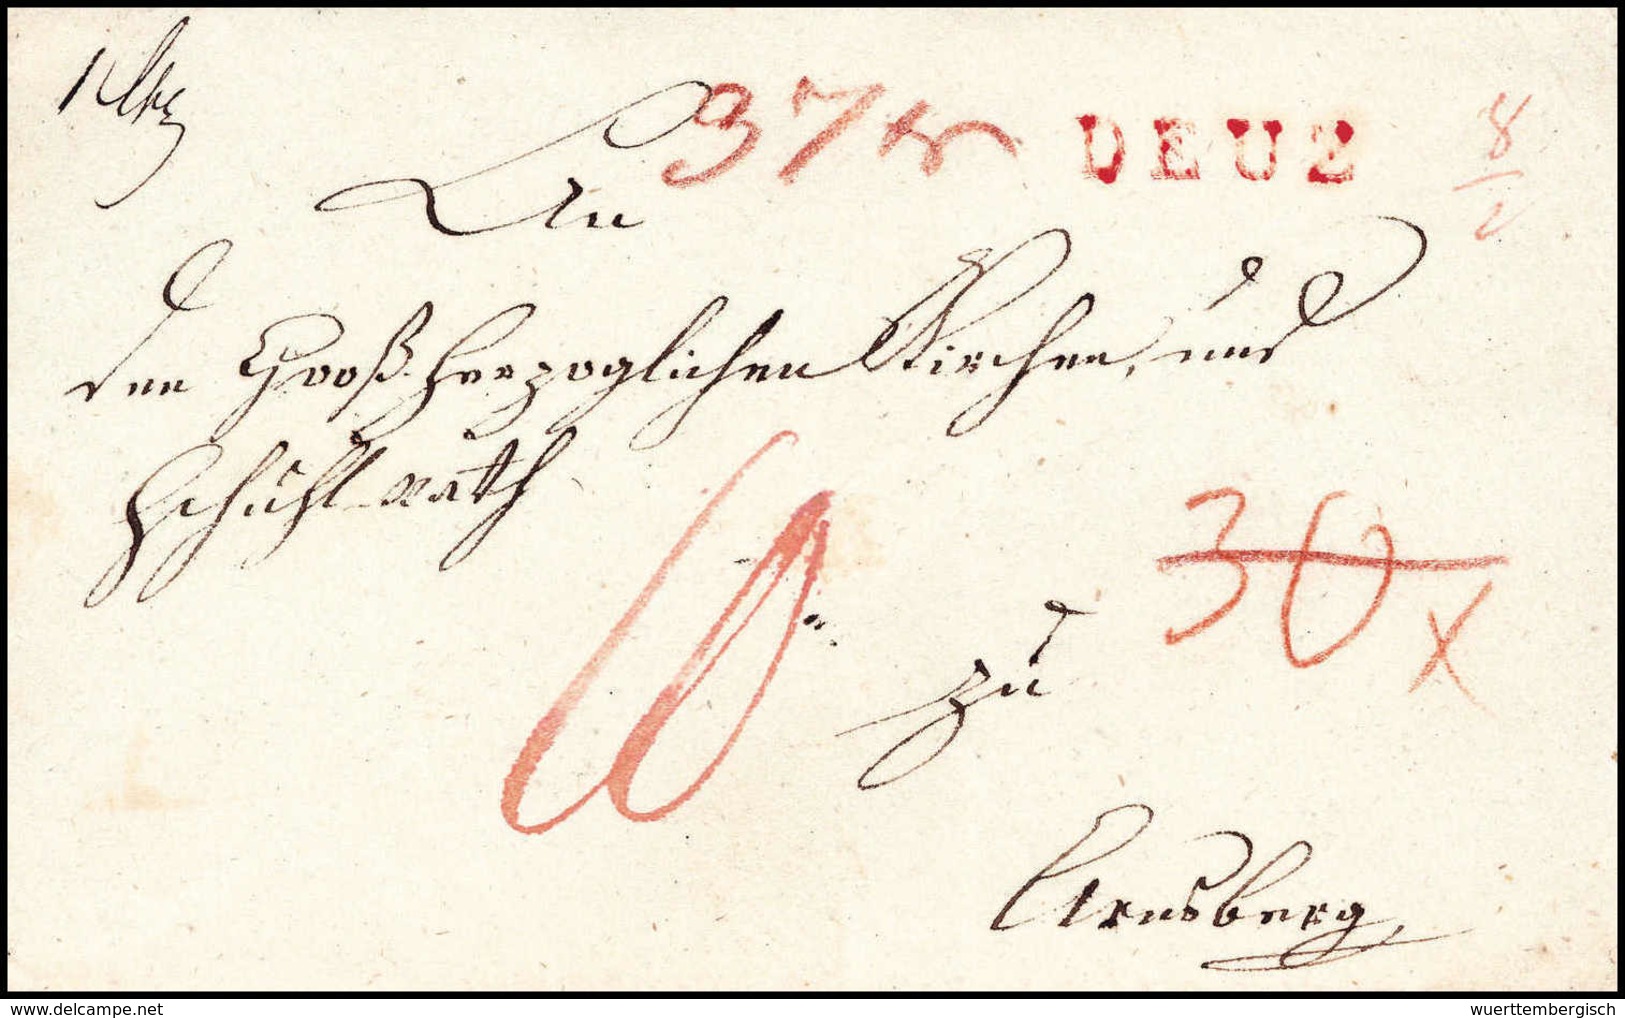 37
DEUZ
8
An
den Großherzoglichen Kirchen, und
Schuhl-rath
30 x
zu
Arnsberg,
delcampe.net
wuerttembergisch